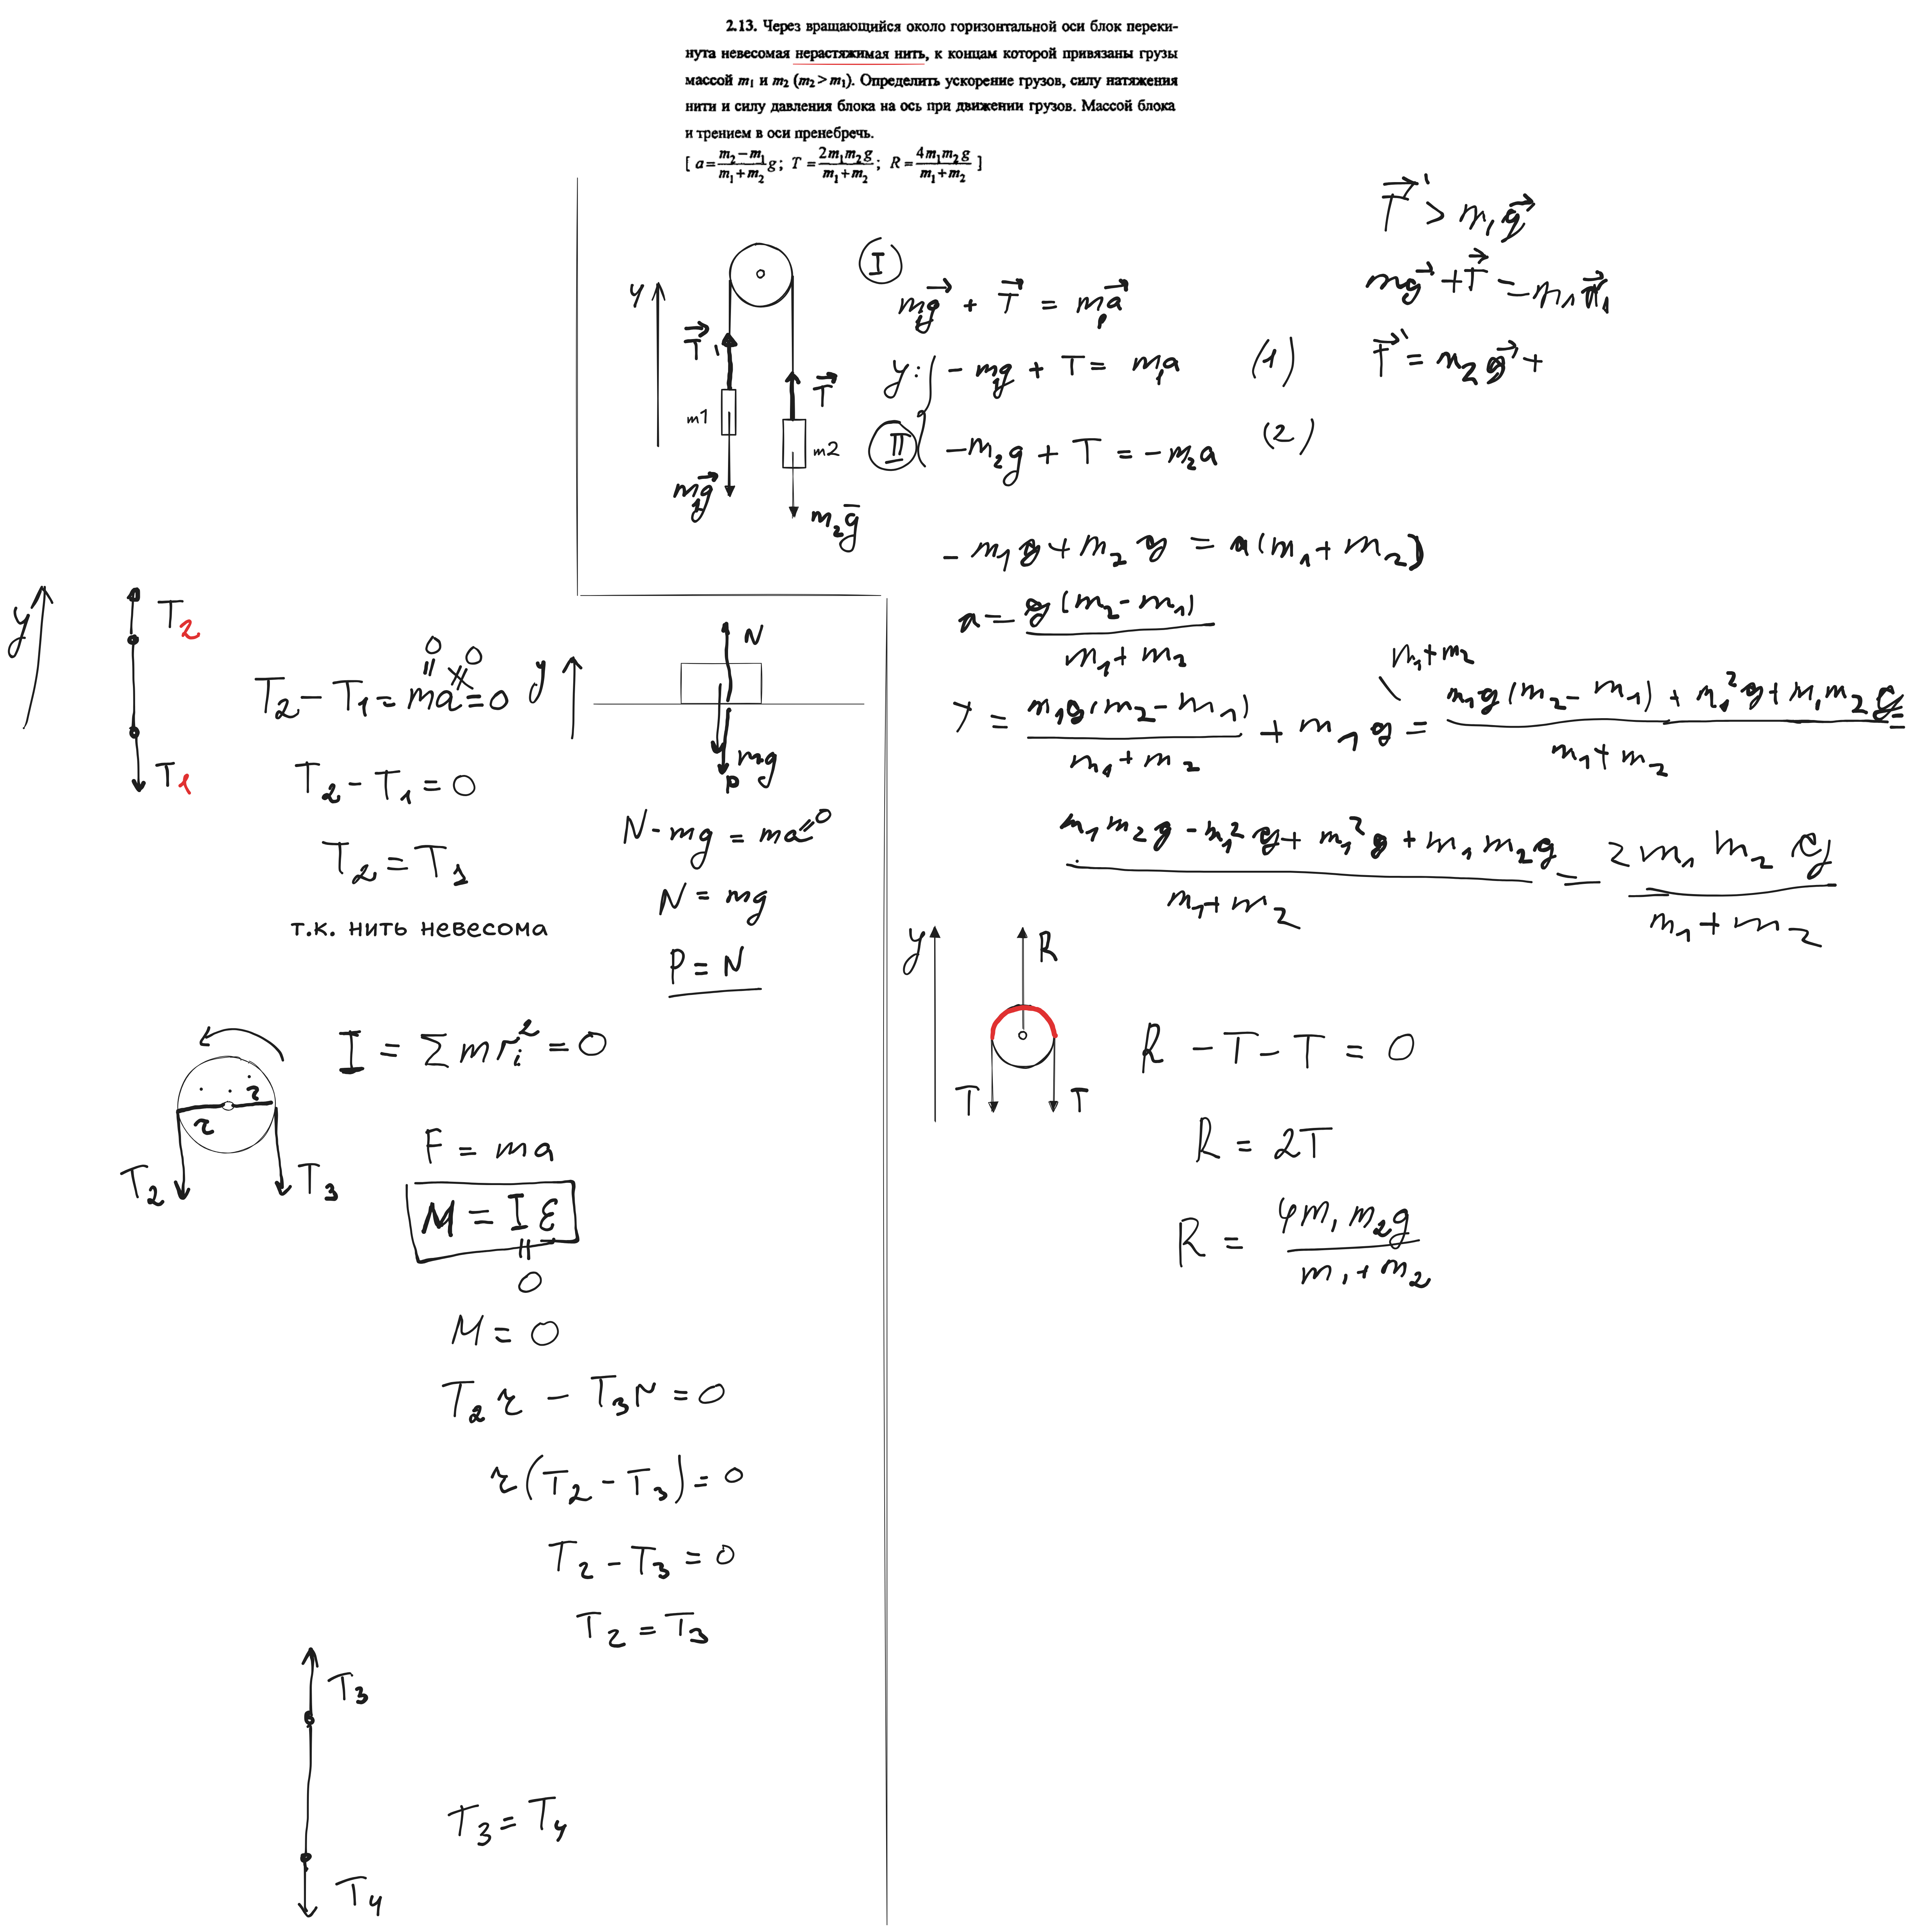 2.13. Через вращающийся около горизонтальной оси блок переки-
нута невесомая нерастяжимая нить, к концам которой привязаны грузы
массой m₁ и m₂ (m₂ > m₁). Определить ускорение грузов, силу натяжения
нити и силу давления блока на ось при движении грузов. Массой блока
и трением в оси пренебречь.
[ a = (m₂ − m₁)/(m₁ + m₂) g; T = 2m₁m₂g/(m₁ + m₂); R = 4m₁m₂g/(m₁ + m₂) ]
y
T⃗'
T⃗
m1
m2
m₁g⃗
m₂g̅
I
m₁g⃗ + T⃗ = m₁a⃗
y: − m₁g + T = m₁a (1)
II − m₂g + T = − m₂a (2)
T⃗' > m₁g⃗
mg⃗ + T⃗ = m₁
T⃗' = m₂g⃗ +
− m₁g + m₂g = a(m₁ + m₂)
a = g(m₂ − m₁)/(m₁ + m₂)
T = m₁g(m₂ − m₁)/(m₁ + m₂) + m₁g = (m₁g(m₂ − m₁) + m₁²g + m₁m₂g)/(m₁ + m₂) =
m₁ + m₂
(m₁m₂g − m₁²g + m₁²g + m₁m₂g)/(m₁ + m₂) = 2m₁m₂g/(m₁ + m₂)
y
R
T
T
R − T − T = 0
R = 2T
R = 4m₁m₂g/(m₁ + m₂)
y
T₂
T₁
0
0
T₂ − T₁ = ma = 0
T₂ − T₁ = 0
T₂ = T₁
т.к. нить невесома
y
N
mg
P
N − mg = ma = 0
N = mg
P = N
r
r
T₂
T₃
I = Σ m rᵢ² = 0
F = ma
M = I ε
0
M = 0
T₂ r − T₃ r = 0
r (T₂ − T₃) = 0
T₂ − T₃ = 0
T₂ = T₃
T₃
T₃ = T₄
T₄